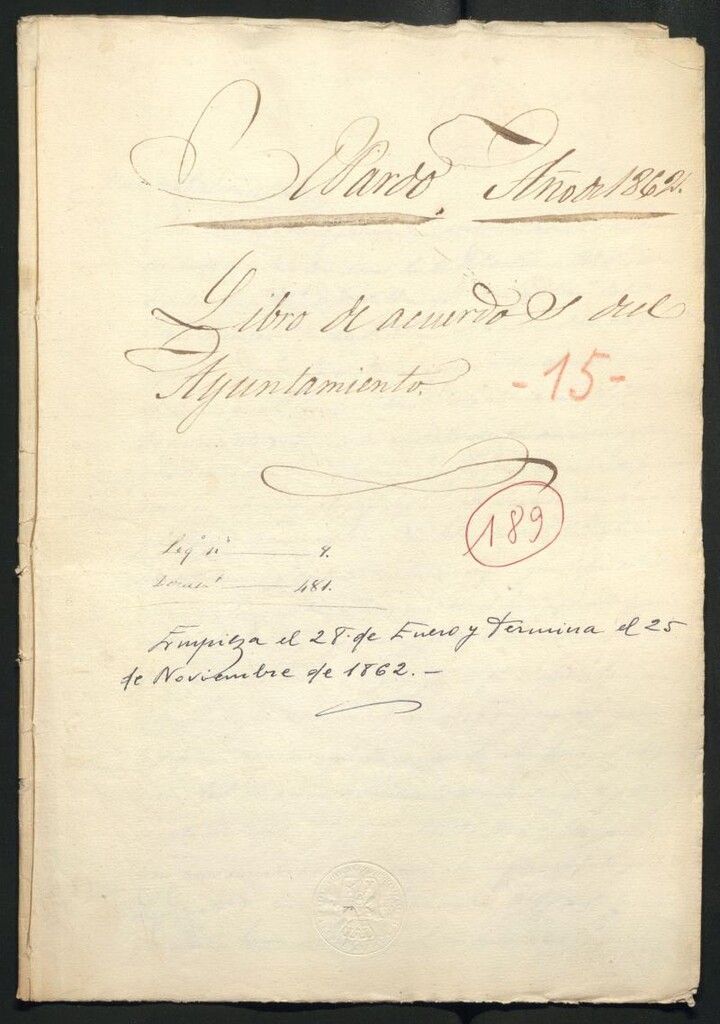 El Pardo. Año de 1862.
Libro de acuerdos del
Ayuntamiento.
-15-
189
Leg.º nº — 9.
Docum.to — 481.
Empieza el 28 de Enero y termina el 25
de Noviembre de 1862.—